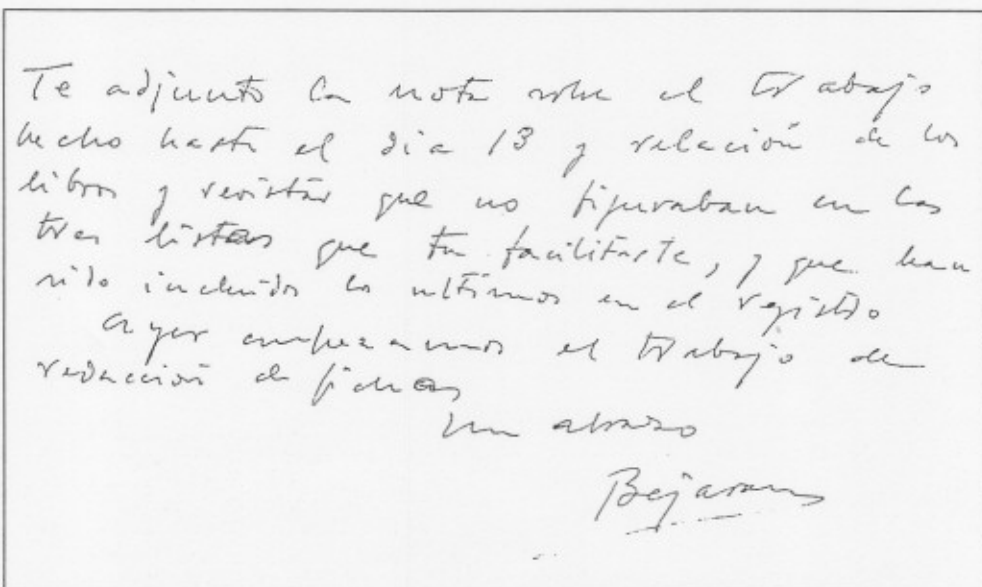 Te adjunto la nota sobre el trabajo
hecho hasta el dia 13 y relación de los
libros y revistas que no figuraban en las
tres listas que tu facilitaste, y que han
sido incluidos los ultimos en el registro
Ayer empezamos el trabajo de
redacción de fichas
Un abrazo
Bejarano